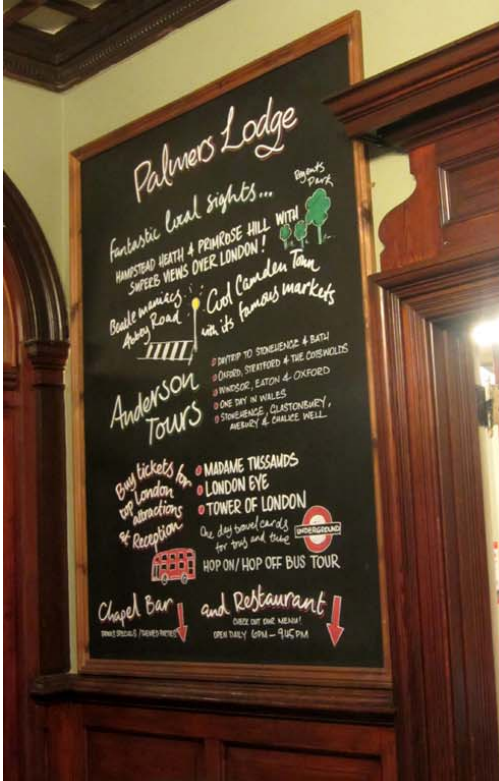 Palmers Lodge
Fantastic local sights...
Regents
Park
HAMPSTEAD HEATH & PRIMROSE HILL WITH
SUPERB VIEWS OVER LONDON!
Beatle maniacs
Abbey Road
Cool Camden Town
with its famous markets
Anderson
Tours
DAYTRIP TO STONEHENGE & BATH
OXFORD, STRATFORD & THE COTSWOLDS
WINDSOR, EATON & OXFORD
ONE DAY IN WALES
STONEHENGE, GLASTONBURY,
AVEBURY & CHALICE WELL
Buy tickets for
top London
attractions
at Reception
MADAME TUSSAUDS
LONDON EYE
TOWER OF LONDON
One day travel cards
for bus and tube
UNDERGROUND
HOP ON/HOP OFF BUS TOUR
Chapel Bar
DRINKS SPECIALS / THEMED PARTIES
and Restaurant
CHECK OUT OUR MENU!
OPEN DAILY 6PM - 9.45PM